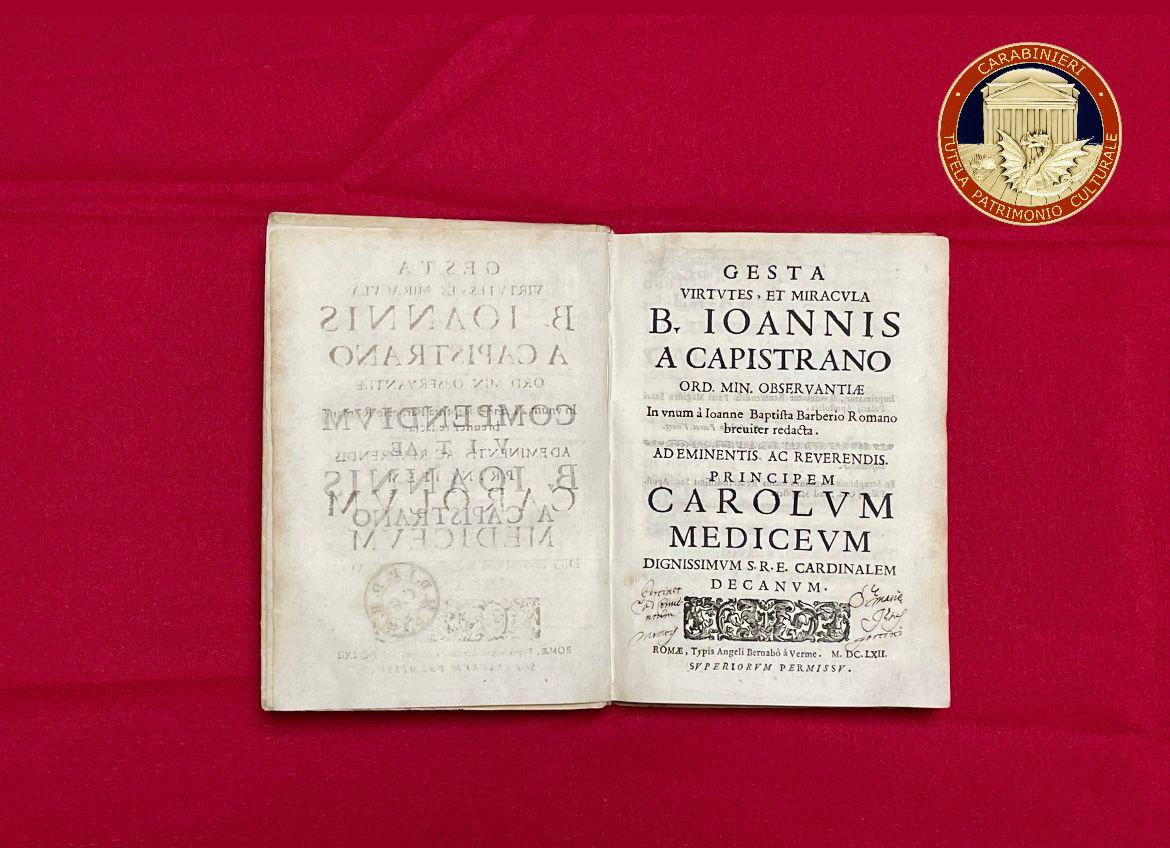 CARABINIERI
TUTELA PATRIMONIO CULTURALE
COMPENDIVM
VITÆ
B. IOANNIS
A CAPISTRANO
GESTA
VIRTVTES, ET MIRACVLA
B. IOANNIS
A CAPISTRANO
ORD. MIN. OBSERVANTIÆ
In vnum à Ioanne Baptiſta Barberio Romano
breuiter redacta.
AD EMINENTIS. AC REVERENDIS.
PRINCIPEM
CAROLVM
MEDICEVM
DIGNISSIMVM S.R.E. CARDINALEM
DECANVM.
ROMÆ, Typis Angeli Bernabò à Verme. M. DC. LXII.
SVPERIORVM PERMISSV.